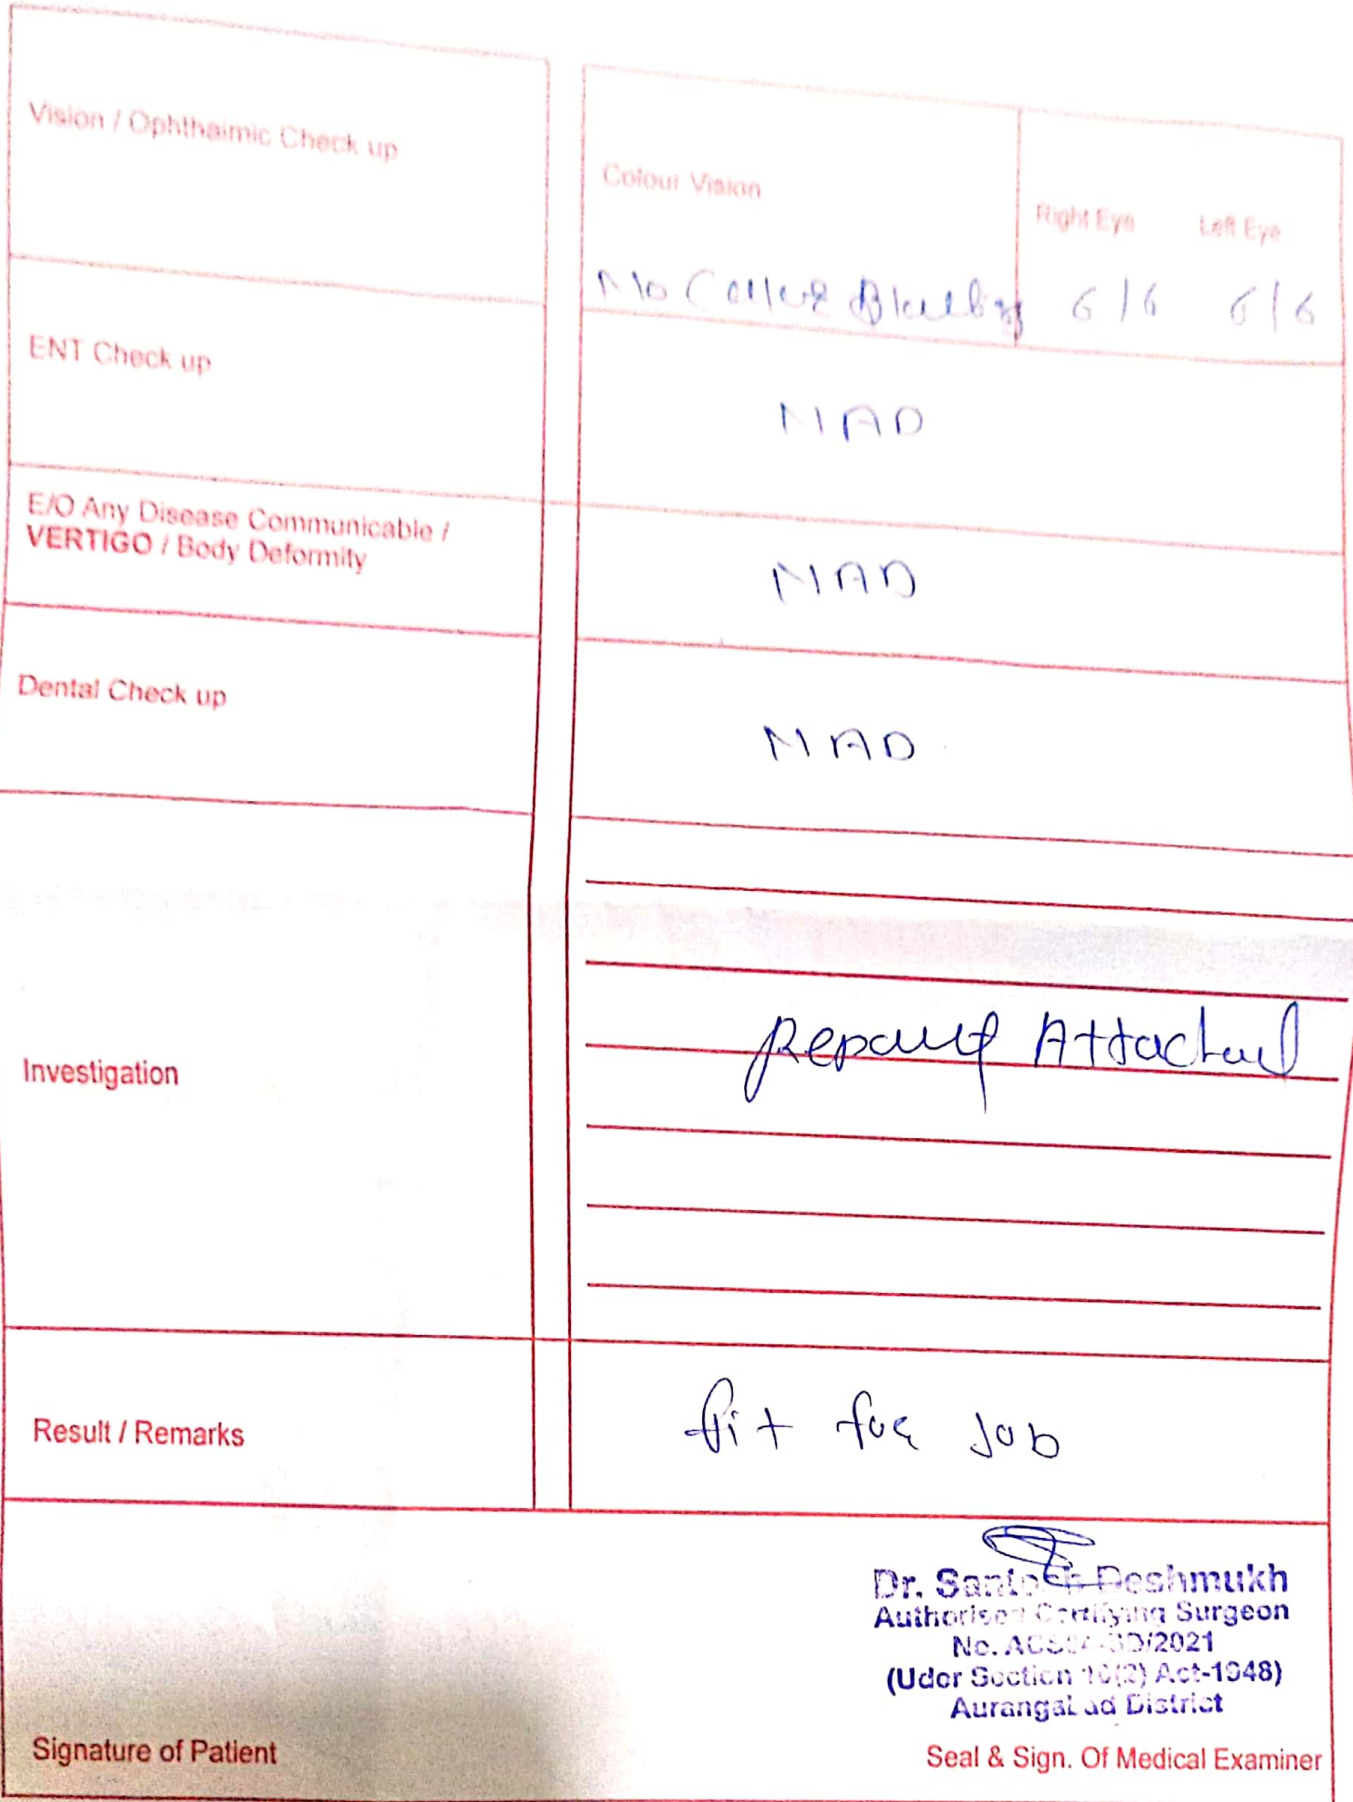 Vision / Ophthalmic Check up
Colour Vision
Right Eye Left Eye
No Colour Blindness 6/6 6/6
ENT Check up
NAD
E/O Any Disease Communicable /
VERTIGO / Body Deformity
NAD
Dental Check up
NAD
Investigation
Report Attached
Result / Remarks
fit for Job
Dr. Santosh Deshmukh
Authorised Certifying Surgeon
No. /2021
(Uder Section Act-1948)
Aurangabad District
Signature of Patient
Seal & Sign. Of Medical Examiner